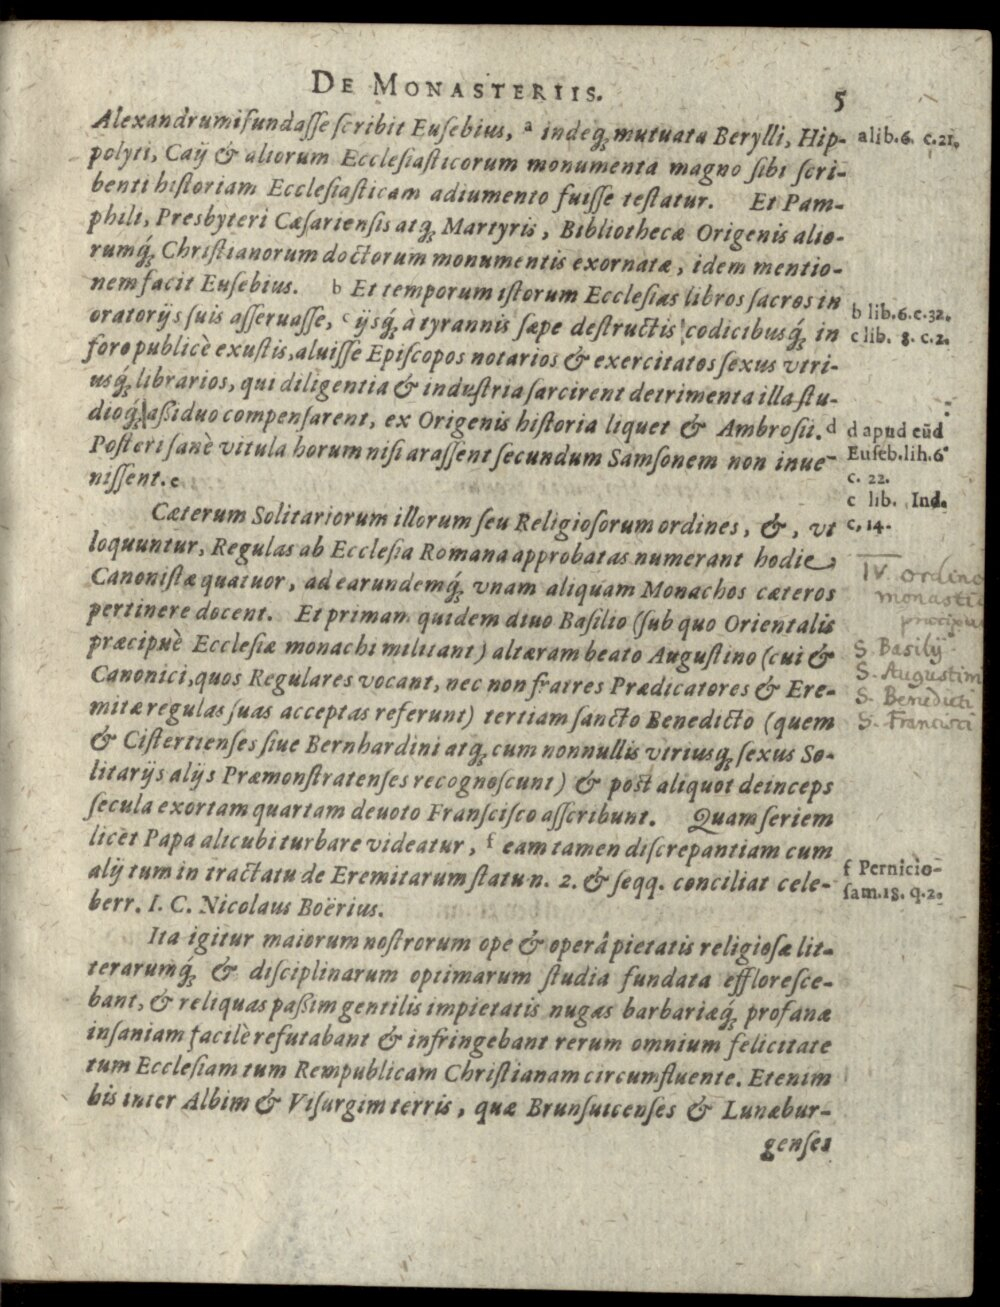 DE MONASTERIIS.
5
Alexandrumifundaſſe ſcribit Euſebius, a indeq́; mutuata Berylli, Hip-
polyti, Caij & aliorum Eccleſiaſticorum monumenta magno ſibi ſcri-
benti hiſtoriam Eccleſiaſticam adiumento fuiſſe teſtatur. Et Pam-
phili, Presbyteri Cæſarienſis atq́; Martyris, Bibliothecæ Origenis alio-
rumq́; Chriſtianorum doctorum monumentis exornatæ, idem mentio-
nem facit Euſebius. b Et temporum iſtorum Eccleſias libros ſacros in
oratorijs ſuis aſſeruaſſe, c ijsq́; à tyrannis ſæpe deſtructis codicibusq́; in
foro publicè exuſtis, aluiſſe Epiſcopos notarios & exercitatos ſexus vtri-
usq́; librarios, qui diligentia & induſtria ſarcirent detrimenta illa ſtu-
dioq́; aßiduo compenſarent, ex Origenis hiſtoria liquet & Ambroſii. d
Poſteri ſanè vitula horum niſi araſſent ſecundum Samſonem non inue-
niſſent. e
Cæterum Solitariorum illorum ſeu Religioſorum ordines, &, vt
loquuntur, Regulas ab Eccleſia Romana approbatas numerant hodie
Canoniſtæ quatuor, ad earundemq́; vnam aliquam Monachos cæteros
pertinere docent. Et primam quidem diuo Baſilio (ſub quo Orientalis
præcipuè Eccleſiæ monachi militant) altæram beato Auguſtino (cui &
Canonici, quos Regulares vocant, nec non fratres Prædicatores & Ere-
mitæ regulas ſuas acceptas referunt) tertiam ſancto Benedicto (quem
& Ciſtertienſes ſiue Bernhardini atq́; cum nonnullis vtriusq́; ſexus So-
litarijs alijs Præmonſtratenſes recognoſcunt) & poſt aliquot deinceps
ſecula exortam quartam deuoto Franſciſco aſſcribunt. Quam ſeriem
licet Papa alicubi turbare videatur, f eam tamen diſcrepantiam cum
alij tum in tractatu de Eremitarum ſtatu n. 2. & ſeqq. conciliat cele-
berr. I. C. Nicolaus Boërius.
Ita igitur maiorum noſtrorum ope & operâ pietatis religioſæ lit-
terarumq́; & diſciplinarum optimarum ſtudia fundata effloreſce-
bant, & reliquas paßim gentilis impietatis nugas barbariæq́; profanæ
inſaniam facilè refutabant & infringebant rerum omnium felicitate
tum Eccleſiam tum Rempublicam Chriſtianam circumfluente. Etenim
bis inter Albim & Viſurgim terris, quæ Brunſuicenſes & Lunæbur-
genſes
a lib. 6. c. 21.
b lib. 6. c. 32.
c lib. 8. c. 2.
d apud eūd
Euſeb. lib. 6
c. 22.
e lib. Ind.
c. 14.
IV. ordine
monasti
S. Basilij
S. Augustin
S. Benedicti
S. Francisci
f Pernicio-
ſam. 18. q. 2.